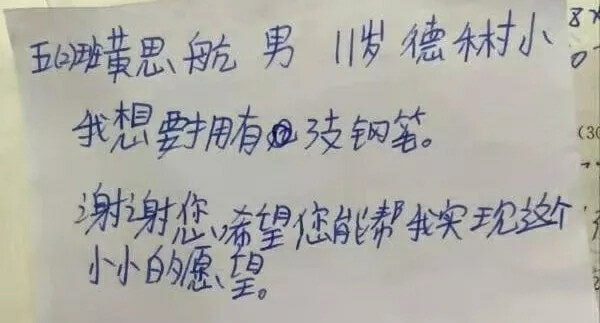 五(2)班黄思航 男 11岁 德林小
我想要拥有 3支钢笔。
谢谢您、希望您能帮我实现这个
小小的愿望。
8
0
(30